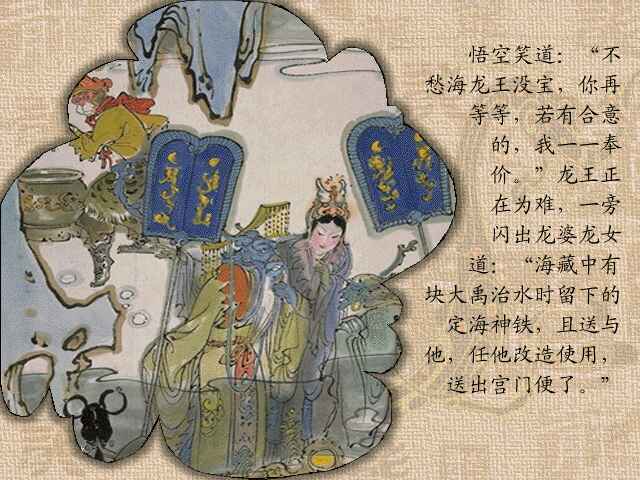 悟空笑道：“不
愁海龙王没宝，你再
等等，若有合意
的，我一一奉
价。”龙王正
在为难，一旁
闪出龙婆龙女
道：“海藏中有
块大禹治水时留下的
定海神铁，且送与
他，任他改造使用，
送出宫门便了。”